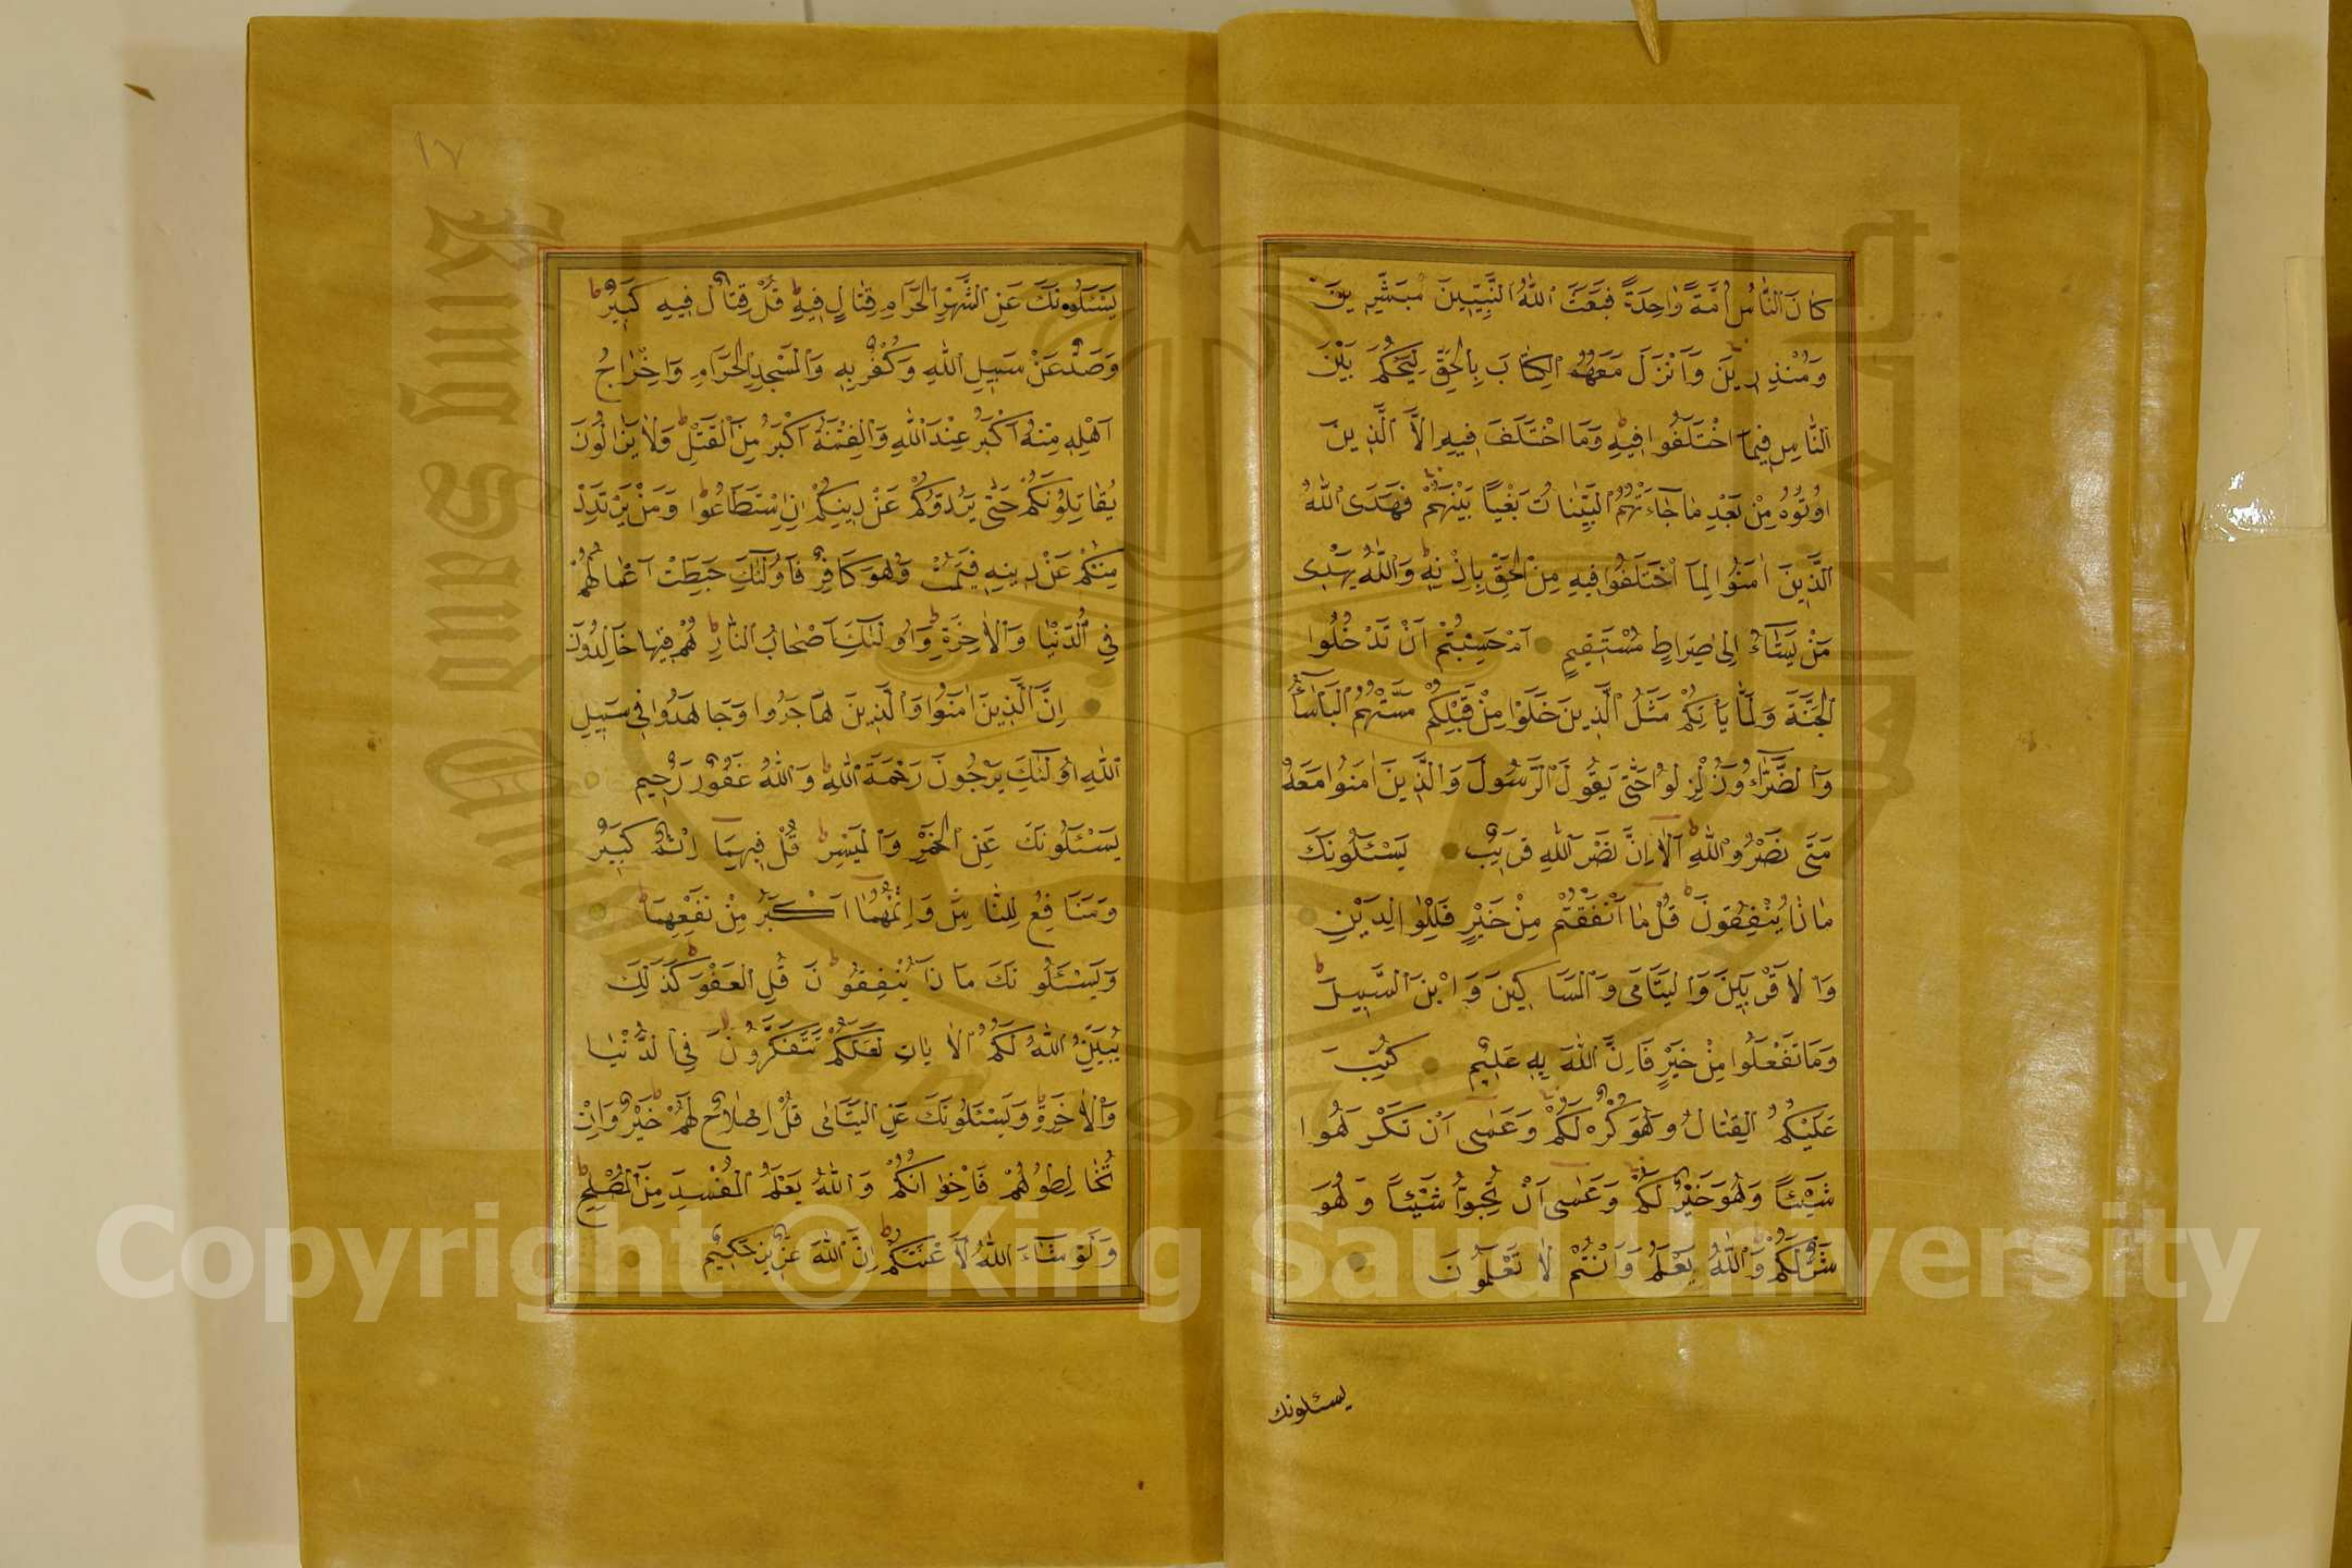 كَانَ النَّاسُ اُمَّةً وَاحِدَةً فَبَعَثَ اللّٰهُ النَّبِيّٖينَ مُبَشِّرٖينَ
وَمُنْذِرٖينَ وَاَنْزَلَ مَعَهُمُ الْكِتَابَ بِالْحَقِّ لِيَحْكُمَ بَيْنَ
النَّاسِ فٖيمَا اخْتَلَفُوا فٖيهِ وَمَا اخْتَلَفَ فٖيهِ اِلَّا الَّذٖينَ
اُوتُوهُ مِنْ بَعْدِ مَا جَٓاءَتْهُمُ الْبَيِّنَاتُ بَغْيًا بَيْنَهُمْ فَهَدَى اللّٰهُ
الَّذٖينَ اٰمَنُوا لِمَا اخْتَلَفُوا فٖيهِ مِنَ الْحَقِّ بِاِذْنِهٖ وَاللّٰهُ يَهْدٖى
مَنْ يَشَٓاءُ اِلٰى صِرَاطٍ مُسْتَقٖيمٍ اَمْ حَسِبْتُمْ اَنْ تَدْخُلُوا
الْجَنَّةَ وَلَمَّا يَأْتِكُمْ مَثَلُ الَّذٖينَ خَلَوْا مِنْ قَبْلِكُمْ مَسَّتْهُمُ الْبَأْسَٓاءُ
وَالضَّرَّٓاءُ وَزُلْزِلُوا حَتّٰى يَقُولَ الرَّسُولُ وَالَّذٖينَ اٰمَنُوا مَعَهُ
مَتٰى نَصْرُ اللّٰهِ اَلَا اِنَّ نَصْرَ اللّٰهِ قَرٖيبٌ يَسْـَٔلُونَكَ
مَاذَا يُنْفِقُونَ قُلْ مَا اَنْفَقْتُمْ مِنْ خَيْرٍ فَلِلْوَالِدَيْنِ
وَالْاَقْرَبٖينَ وَالْيَتَامٰى وَالْمَسَاكٖينَ وَابْنِ السَّبٖيلِ
وَمَا تَفْعَلُوا مِنْ خَيْرٍ فَاِنَّ اللّٰهَ بِهٖ عَلٖيمٌ كُتِبَ
عَلَيْكُمُ الْقِتَالُ وَهُوَ كُرْهٌ لَكُمْ وَعَسٰى اَنْ تَكْرَهُوا
شَيْـًٔا وَهُوَ خَيْرٌ لَكُمْ وَعَسٰى اَنْ تُحِبُّوا شَيْـًٔا وَهُوَ
شَرٌّ لَكُمْ وَاللّٰهُ يَعْلَمُ وَاَنْتُمْ لَا تَعْلَمُونَ
يسئلونك
١٧
يَسْـَٔلُونَكَ عَنِ الشَّهْرِ الْحَرَامِ قِتَالٍ فٖيهِ قُلْ قِتَالٌ فٖيهِ كَبٖيرٌ
وَصَدٌّ عَنْ سَبٖيلِ اللّٰهِ وَكُفْرٌ بِهٖ وَالْمَسْجِدِ الْحَرَامِ وَاِخْرَاجُ
اَهْلِهٖ مِنْهُ اَكْبَرُ عِنْدَ اللّٰهِ وَالْفِتْنَةُ اَكْبَرُ مِنَ الْقَتْلِ وَلَا يَزَالُونَ
يُقَاتِلُونَكُمْ حَتّٰى يَرُدُّوكُمْ عَنْ دٖينِكُمْ اِنِ اسْتَطَاعُوا وَمَنْ يَرْتَدِدْ
مِنْكُمْ عَنْ دٖينِهٖ فَيَمُتْ وَهُوَ كَافِرٌ فَاُولٰٓئِكَ حَبِطَتْ اَعْمَالُهُمْ
فِي الدُّنْيَا وَالْاٰخِرَةِ وَاُولٰٓئِكَ اَصْحَابُ النَّارِ هُمْ فٖيهَا خَالِدُونَ
اِنَّ الَّذٖينَ اٰمَنُوا وَالَّذٖينَ هَاجَرُوا وَجَاهَدُوا فٖى سَبٖيلِ
اللّٰهِ اُولٰٓئِكَ يَرْجُونَ رَحْمَةَ اللّٰهِ وَاللّٰهُ غَفُورٌ رَحٖيمٌ
يَسْـَٔلُونَكَ عَنِ الْخَمْرِ وَالْمَيْسِرِ قُلْ فٖيهِمَا اِثْمٌ كَبٖيرٌ
وَمَنَافِعُ لِلنَّاسِ وَاِثْمُهُمَا اَكْبَرُ مِنْ نَفْعِهِمَا
وَيَسْـَٔلُونَكَ مَاذَا يُنْفِقُونَ قُلِ الْعَفْوَ كَذٰلِكَ
يُبَيِّنُ اللّٰهُ لَكُمُ الْاٰيَاتِ لَعَلَّكُمْ تَتَفَكَّرُونَ فِي الدُّنْيَا
وَالْاٰخِرَةِ وَيَسْـَٔلُونَكَ عَنِ الْيَتَامٰى قُلْ اِصْلَاحٌ لَهُمْ خَيْرٌ وَاِنْ
تُخَالِطُوهُمْ فَاِخْوَانُكُمْ وَاللّٰهُ يَعْلَمُ الْمُفْسِدَ مِنَ الْمُصْلِحِ
وَلَوْ شَٓاءَ اللّٰهُ لَاَعْنَتَكُمْ اِنَّ اللّٰهَ عَزٖيزٌ حَكٖيمٌ
Copyright © King Saud University
King Saud University
1957